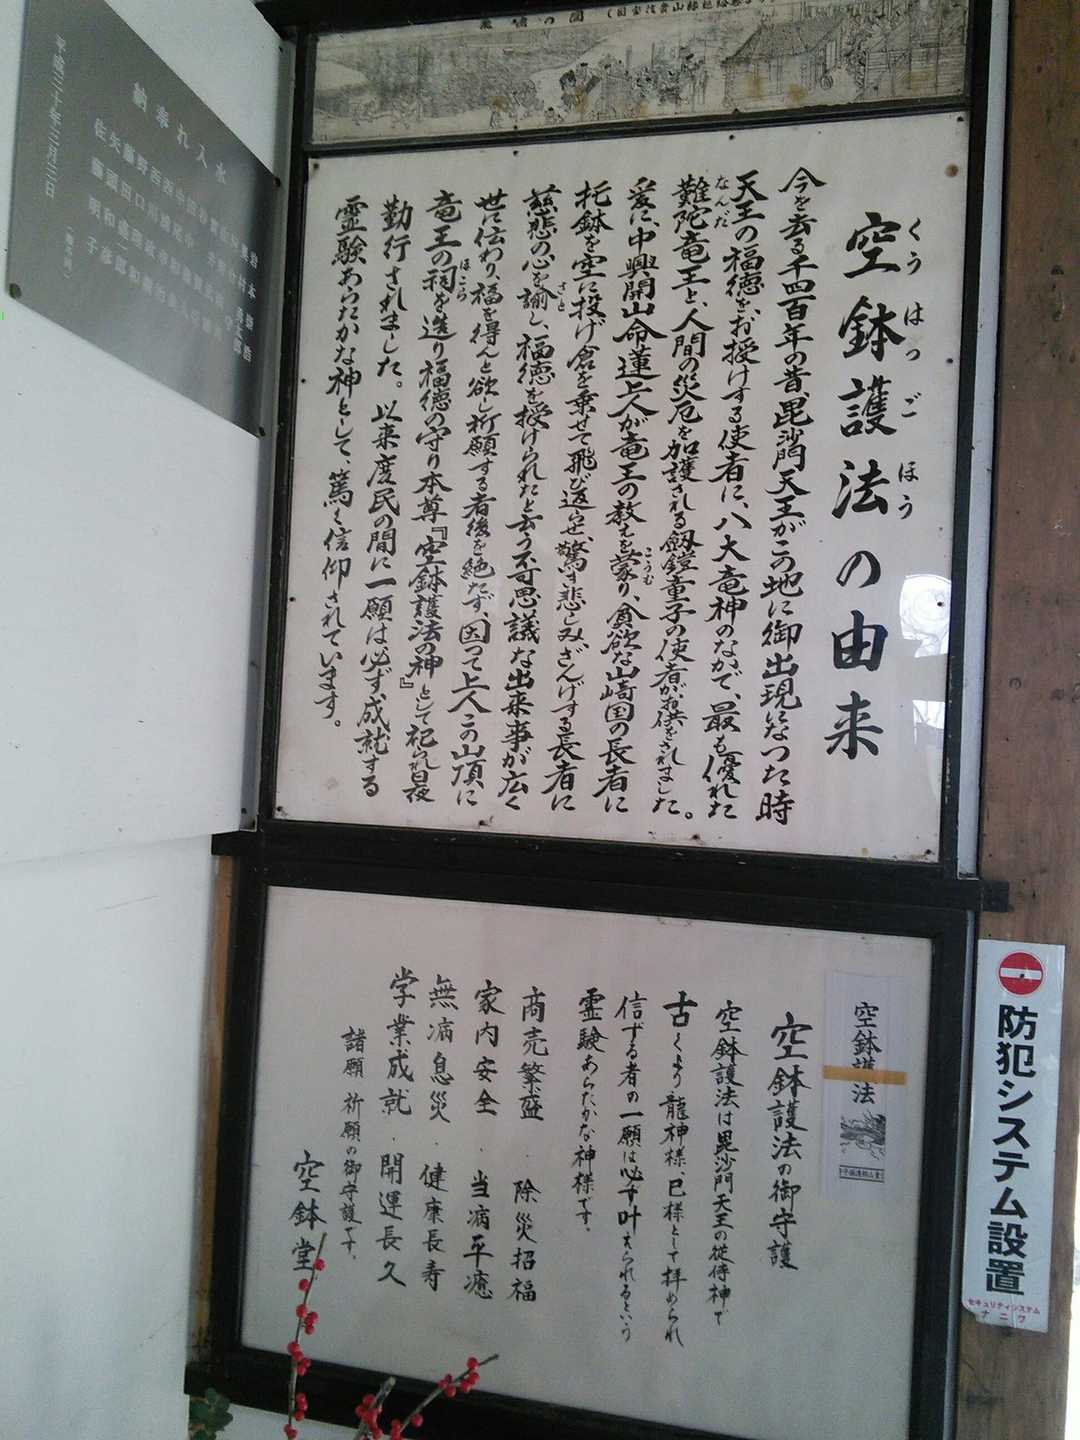 空鉢護法の由来
くうはつごほう
今を去る千四百年の昔、毘沙門天王がこの地に御出現になつた時
天王の福徳を、お授けする使者に、八大竜神のなかで、最も優れた
なんだ
難陀竜王と、人間の災厄を加護される剱鎧童子の使者がお供をされました。
爰に、中興開山命蓮上人が竜王の教えを蒙り、貪欲な山崎国の長者に
こうむ
托鉢を空に投げ倉を乗せて飛び返らせ、驚き悲しみざんげする長者に
慈悲の心を諭し、福徳を授けられたと云う不可思議な出来事が広く
さと
世に伝わり、福を得んと欲し祈願する者後を絶たず、因って上人この山頂に
竜王の祠を造り福徳の守り本尊『空鉢護法の神』として祀られ日夜
ほこら
勤行されました。以来庶民の間に一願は必ず成就する
霊験あらたかな神として、篤く信仰されています。
空鉢護法
空鉢護法の御守護
空鉢護法は毘沙門天王の従侍神で
古くより龍神様、巳様として拝められ
信ずる者の一願は必ず叶えられるという
霊験あらたかな神様です。
商売繁盛 除災招福
家内安全・当病平癒
無病息災・健康長寿
学業成就・開運長久
諸願祈願の御守護です。
空鉢堂
水入れ奉納
平成二十年三月三日
防犯システム設置
セキュリティシステム
ナニワ